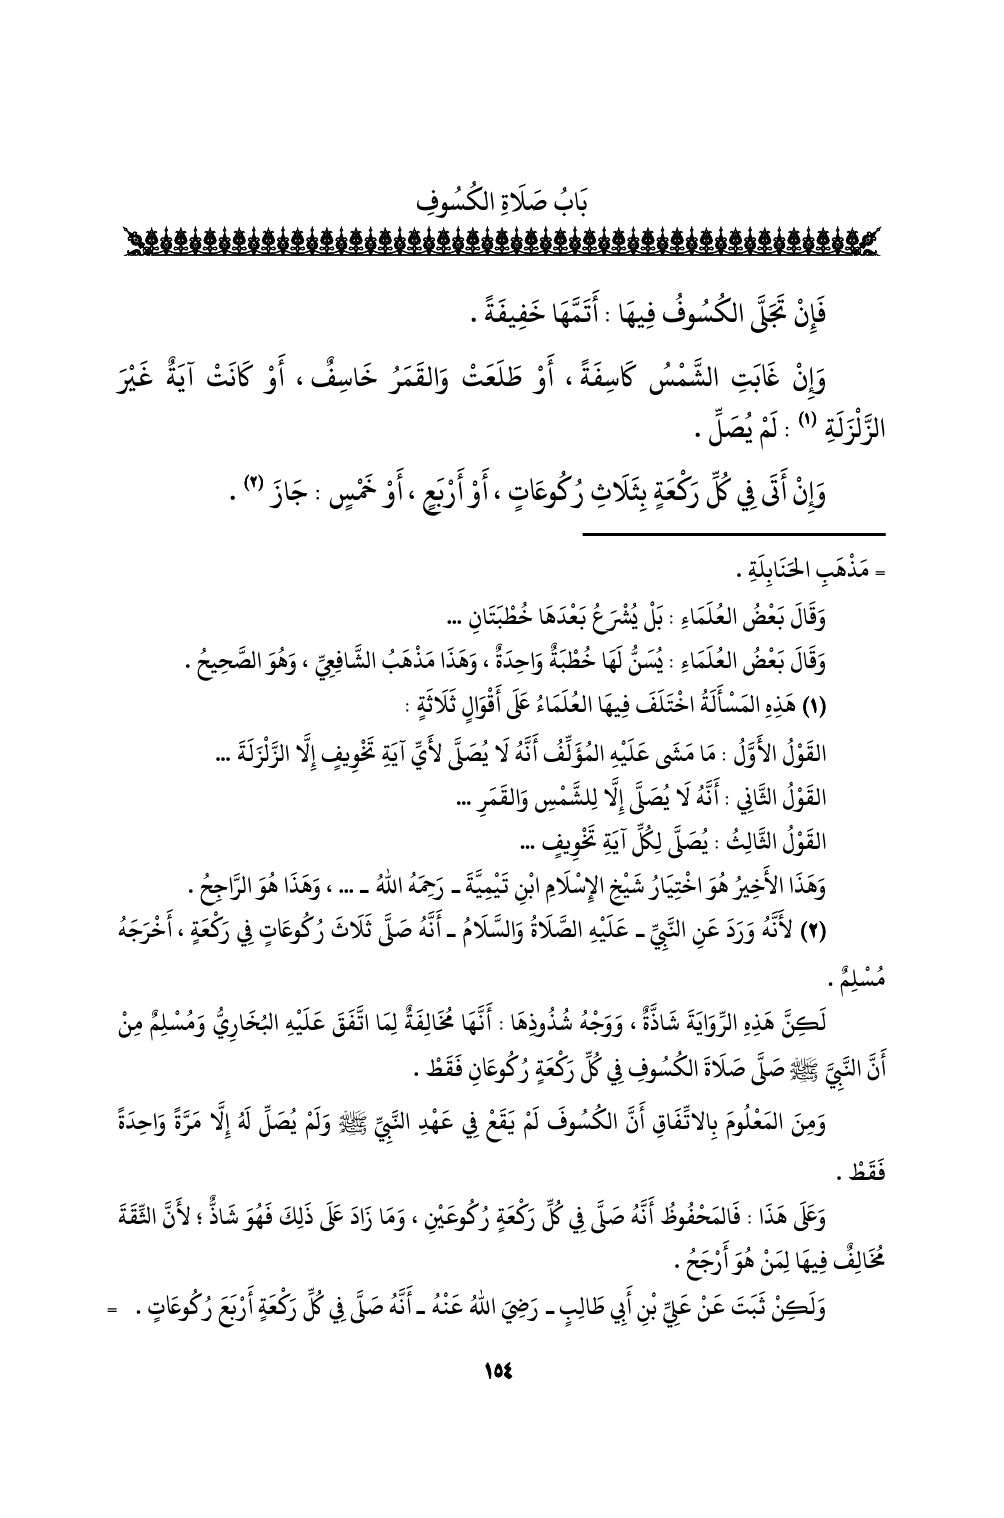 بَابُ صَلَاةِ الكُسُوفِ
فَإِنْ تَجَلَّى الكُسُوفُ فِيهَا : أَتَمَّهَا خَفِيفَةً .
وَإِنْ غَابَتِ الشَّمْسُ كَاسِفَةً ، أَوْ طَلَعَتْ وَالقَمَرُ خَاسِفٌ ، أَوْ كَانَتْ آيَةٌ غَيْرَ
الزَّلْزَلَةِ (١) : لَمْ يُصَلِّ .
وَإِنْ أَتَى فِي كُلِّ رَكْعَةٍ بِثَلَاثِ رُكُوعَاتٍ ، أَوْ أَرْبَعٍ ، أَوْ خَمْسٍ : جَازَ (٢) .
= مَذْهَبِ الحَنَابِلَةِ .
وَقَالَ بَعْضُ العُلَمَاءِ : بَلْ يُشْرَعُ بَعْدَهَا خُطْبَتَانِ ...
وَقَالَ بَعْضُ العُلَمَاءِ : يُسَنُّ لَهَا خُطْبَةٌ وَاحِدَةٌ ، وَهَذَا مَذْهَبُ الشَّافِعِيِّ ، وَهُوَ الصَّحِيحُ .
(١) هَذِهِ المَسْأَلَةُ اخْتَلَفَ فِيهَا العُلَمَاءُ عَلَى أَقْوَالٍ ثَلَاثَةٍ :
القَوْلُ الأَوَّلُ : مَا مَشَى عَلَيْهِ المُؤَلِّفُ أَنَّهُ لَا يُصَلَّى لأَيِّ آيَةِ تَخْوِيفٍ إِلَّا الزَّلْزَلَةَ ...
القَوْلُ الثَّانِي : أَنَّهُ لَا يُصَلَّى إِلَّا لِلشَّمْسِ وَالقَمَرِ ...
القَوْلُ الثَّالِثُ : يُصَلَّى لِكُلِّ آيَةِ تَخْوِيفٍ ...
وَهَذَا الأَخِيرُ هُوَ اخْتِيَارُ شَيْخِ الإِسْلَامِ ابْنِ تَيْمِيَّةَ ـ رَحِمَهُ اللهُ ـ ... ، وَهَذَا هُوَ الرَّاجِحُ .
(٢) لأَنَّهُ وَرَدَ عَنِ النَّبِيِّ ـ عَلَيْهِ الصَّلَاةُ وَالسَّلَامُ ـ أَنَّهُ صَلَّى ثَلَاثَ رُكُوعَاتٍ فِي رَكْعَةٍ ، أَخْرَجَهُ
مُسْلِمٌ .
لَكِنَّ هَذِهِ الرِّوَايَةَ شَاذَّةٌ ، وَوَجْهُ شُذُوذِهَا : أَنَّهَا مُخَالِفَةٌ لِمَا اتَّفَقَ عَلَيْهِ البُخَارِيُّ وَمُسْلِمٌ مِنْ
أَنَّ النَّبِيَّ ﷺ صَلَّى صَلَاةَ الكُسُوفِ فِي كُلِّ رَكْعَةٍ رُكُوعَانِ فَقَطْ .
وَمِنَ المَعْلُومَ بِالاتِّفَاقِ أَنَّ الكُسُوفَ لَمْ يَقَعْ فِي عَهْدِ النَّبِيِّ ﷺ وَلَمْ يُصَلِّ لَهُ إِلَّا مَرَّةً وَاحِدَةً
فَقَطْ .
وَعَلَى هَذَا : فَالمَحْفُوظُ أَنَّهُ صَلَّى فِي كُلِّ رَكْعَةٍ رُكُوعَيْنِ ، وَمَا زَادَ عَلَى ذَلِكَ فَهُوَ شَاذٌّ ؛ لأَنَّ الثِّقَةَ
مُخَالِفٌ فِيهَا لِمَنْ هُوَ أَرْجَحُ .
وَلَكِنْ ثَبَتَ عَنْ عَلِيِّ بْنِ أَبِي طَالِبٍ ـ رَضِيَ اللهُ عَنْهُ ـ أَنَّهُ صَلَّى فِي كُلِّ رَكْعَةٍ أَرْبَعَ رُكُوعَاتٍ . =
١٥٤